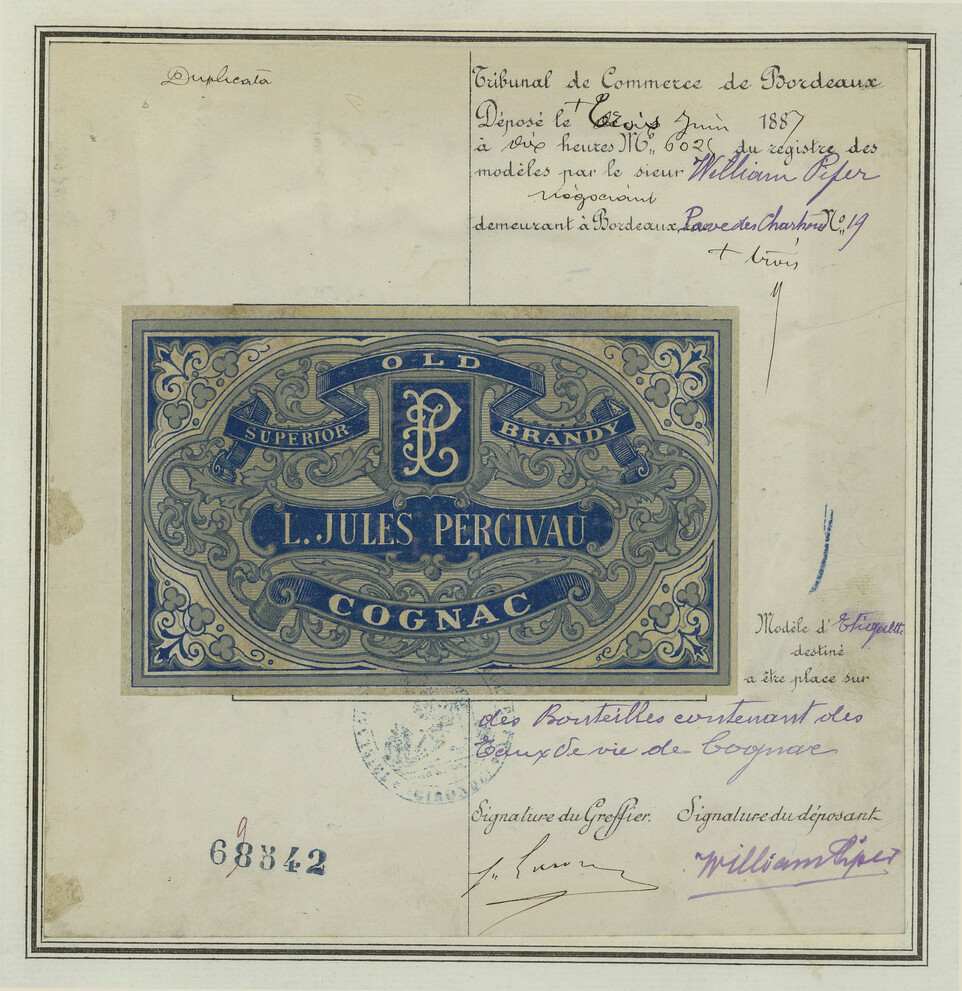 Duplicata
Tribunal de Commerce de Bordeaux
Déposé le + Juin 1887
à dix heures No 6025 du registre des
modèles par le sieur William Piper
négociant
demeurant à Bordeaux, Pavé des Chartrons No 19
+ trois
OLD
SUPERIOR BRANDY
L. JULES PERCIVAU
COGNAC
Modèle d'Etiquette
destiné
a être place sur
des Bouteilles contenant des
Eaux de vie de Cognac
GIRONDE
Signature du Greffier. Signature du déposant
William Piper
9
68842